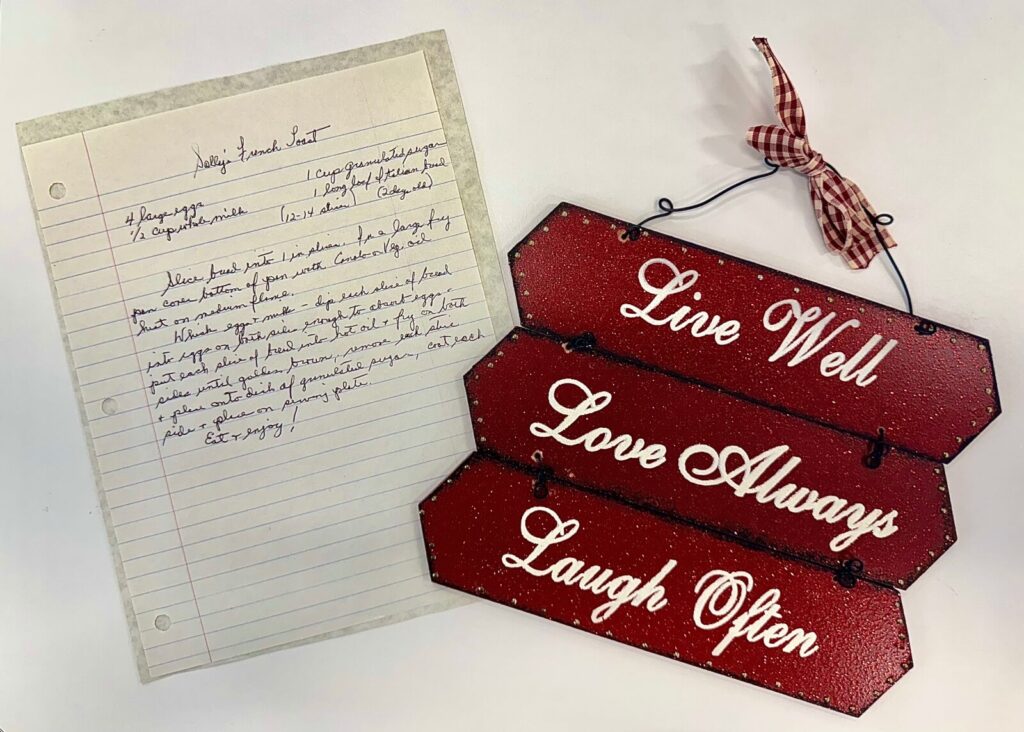 Sally's French Toast
4 large eggs 1 cup granulated sugar
1/2 cup whole milk 1 long loaf of Italian bread
(12-14 slices) (2 days old)
Slice bread into 1 in slices. In a large fry
pan cover bottom of pan with Canola or Veg. oil
heat on medium flame.
Whisk eggs + milk - dip each slice of bread
into eggs on both sides enough to absorb eggs -
put each slice of bread into hot oil + fry on both
sides until golden brown, remove each slice
+ place onto dish of granulated sugar, coat each
side + place on serving plate.
Eat + enjoy!
Live Well
Love Always
Laugh Often